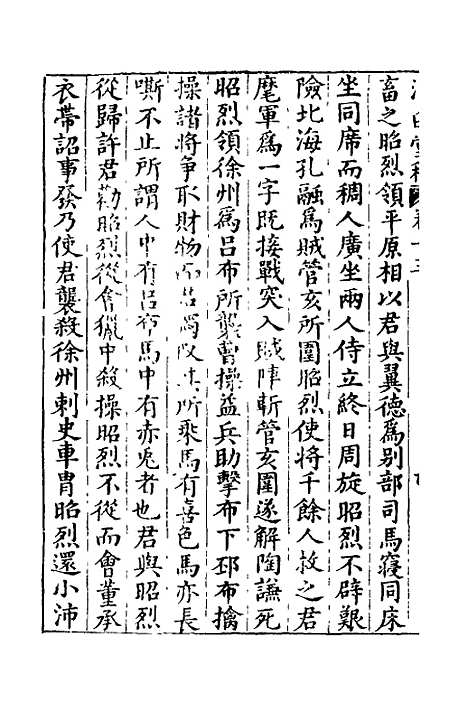 畜之昭烈領平原相以君與翼德爲别部司馬寢同床
坐同席而稠人廣坐兩人侍立終日周旋昭烈不辟艱
險北海孔融爲賊管亥所圍昭烈使將千餘人救之君
麾軍爲一字旣接戰突入賊陣斬管亥圍遂解陶謙死
昭烈領徐州爲呂布所襲曹操益兵助擊布下邳布擒
操諸將爭取財物而君獨以其所乘馬有喜色馬亦長
嘶不止所謂人中有呂布馬中有赤兎者也君與昭烈
從歸許君勸昭烈從會獵中殺操昭烈不從而會董承
衣帶詔事發乃使君襲殺徐州刺史車胄昭烈還小沛